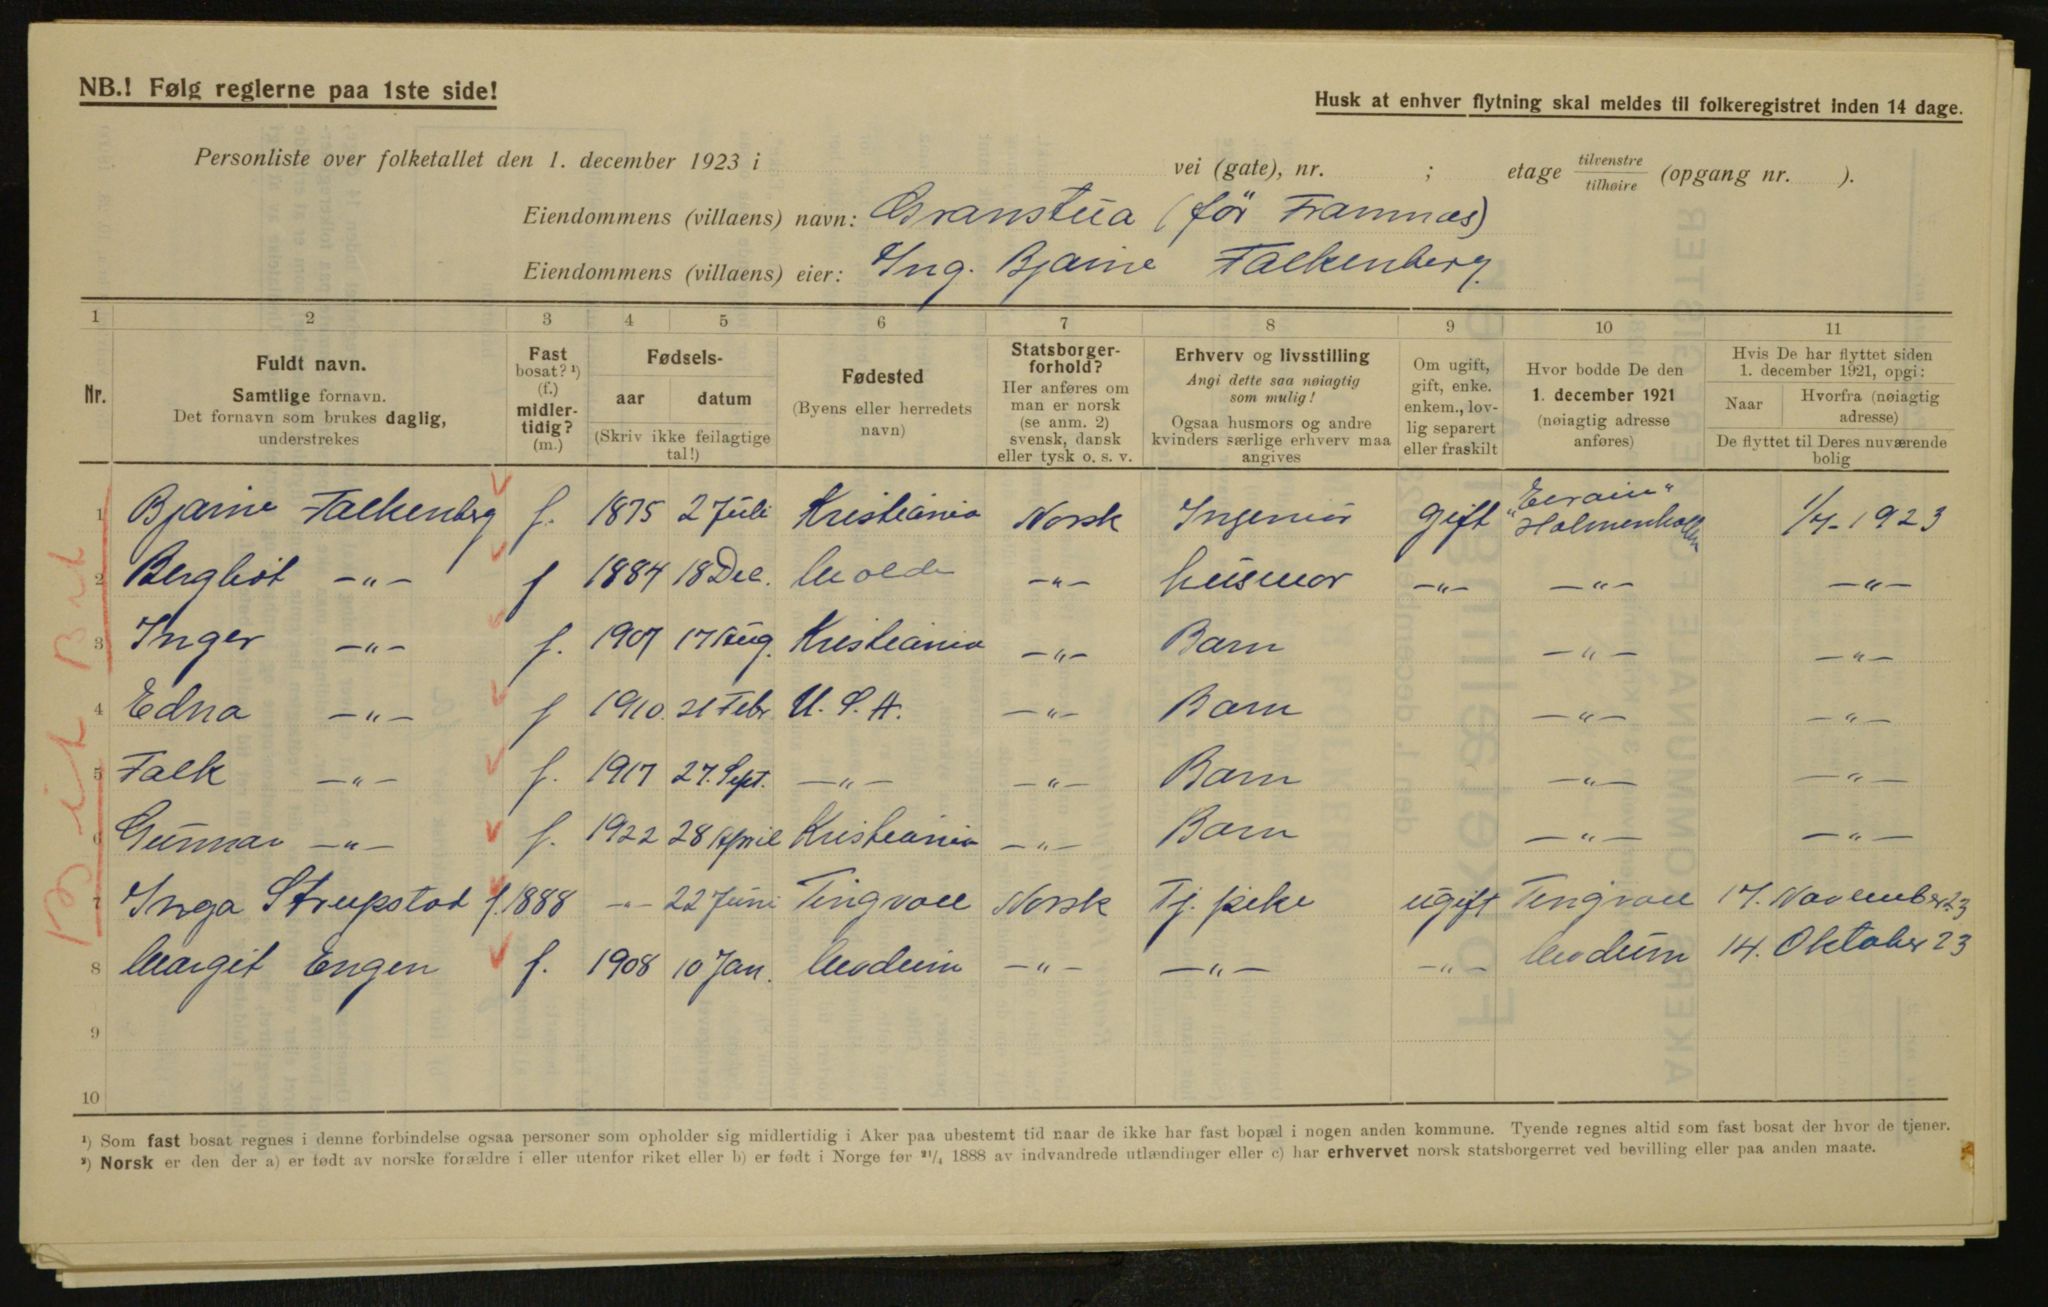 NB.! Følg reglerne paa 1ste side!
Husk at enhver flytning skal meldes til folkeregistret inden 14 dage.
Personliste over folketallet den 1. december 1923 i vei (gate), nr. ; etage tilvenstre/tilhøire (opgang nr. ).
Eiendommens (villaens) navn: Granstua (før Framnæs)
Eiendommens (villaens) eier: Ing. Bjarne Falkenberg
1 2 3 4 5 6 7 8 9 10 11
Nr.
Fuldt navn.
Samtlige fornavn.
Det fornavn som brukes daglig, understrekes
Fast bosat? ¹) (f.) midler-tidig? (m.)
Fødsels-
aar datum
(Skriv ikke feilagtige tal!)
Fødested
(Byens eller herredets navn)
Statsborger-forhold?
Her anføres om man er norsk (se anm. 2) svensk, dansk eller tysk o. s. v.
Erhverv og livsstilling
Angi dette saa nøiagtig som mulig!
Ogsaa husmors og andre kvinders særlige erhverv maa angives
Om ugift, gift, enke. enkem., lov-lig separert eller fraskilt
Hvor bodde De den 1. december 1921
(nøiagtig adresse anføres)
Hvis De har flyttet siden 1. december 1921, opgi:
Naar Hvorfra (nøiagtig adresse)
De flyttet til Deres nuværende bolig
1 Bjarne Falkenberg f. 1875 2 Juli Kristiania Norsk Ingeniør gift Holmenkollen 1/7-1923
2 Bergliot –„– f 1884 18 Dec. Molde –„– husmor –„– –„– –„–
3 Inger –„– f. 1907 17 Aug. Kristiania –„– Barn –„– –„–
4 Edna –„– f 1910 21 Febr U. S. A. –„– Barn –„– –„–
5 Falk –„– f. 1917 27. Sept. –„– –„– Barn –„– –„–
6 Gunnar –„– f. 1922 28 April Kristiania –„– Barn –„– –„–
7 Inga Strupstad f. 1888 –„– 22 Juni Tingvoll Norsk Tj. pike ugift Tingvoll 17. November 23
8 Margit Engen f. 1908 10 Jan. Modum –„– –„– –„– Modum 14. Oktober 23
9
10
¹) Som fast bosat regnes i denne forbindelse ogsaa personer som opholder sig midlertidig i Aker paa ubestemt tid naar de ikke har fast bopæl i nogen anden kommune. Tyende regnes altid som fast bosat der hvor de tjener.
²) Norsk er den der a) er født av norske forældre i eller utenfor riket eller b) er født i Norge før ²¹/₄ 1888 av indvandrede utlændinger eller c) har erhvervet norsk statsborgerret ved bevilling eller paa anden maate.